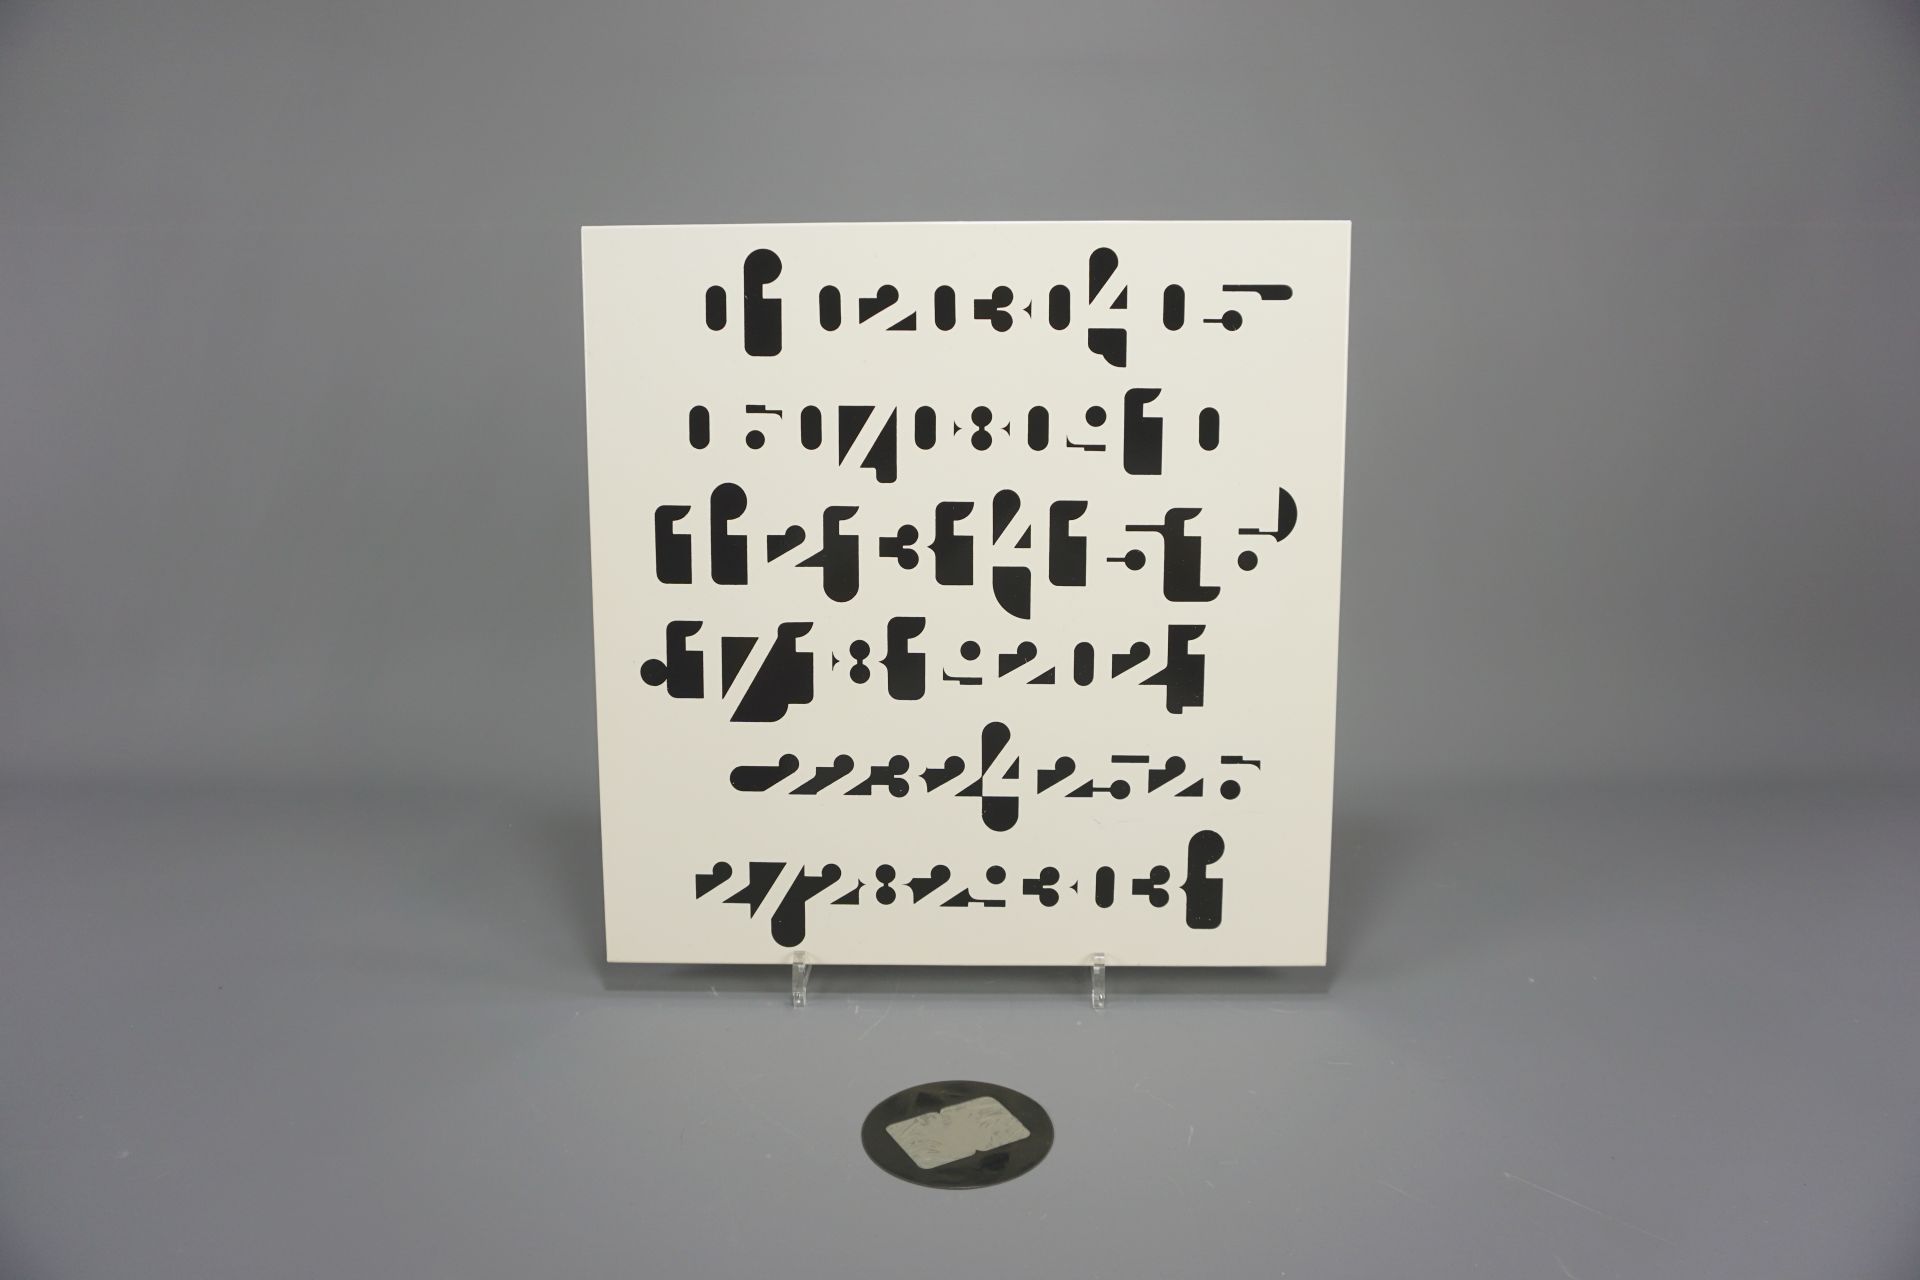 0102030405
0607080910
111213141516
1718192021
2223242526
2728293031